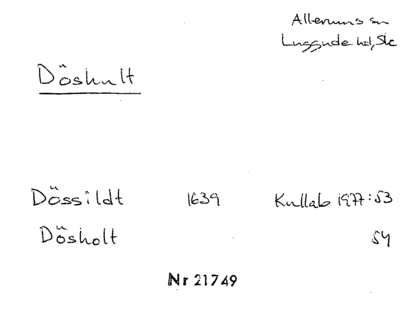 Allerums sn
Luggude hd, Sk
Döshult
Dössildt 1639 Kullab 1977:53
Dösholt 54
Nr 21749